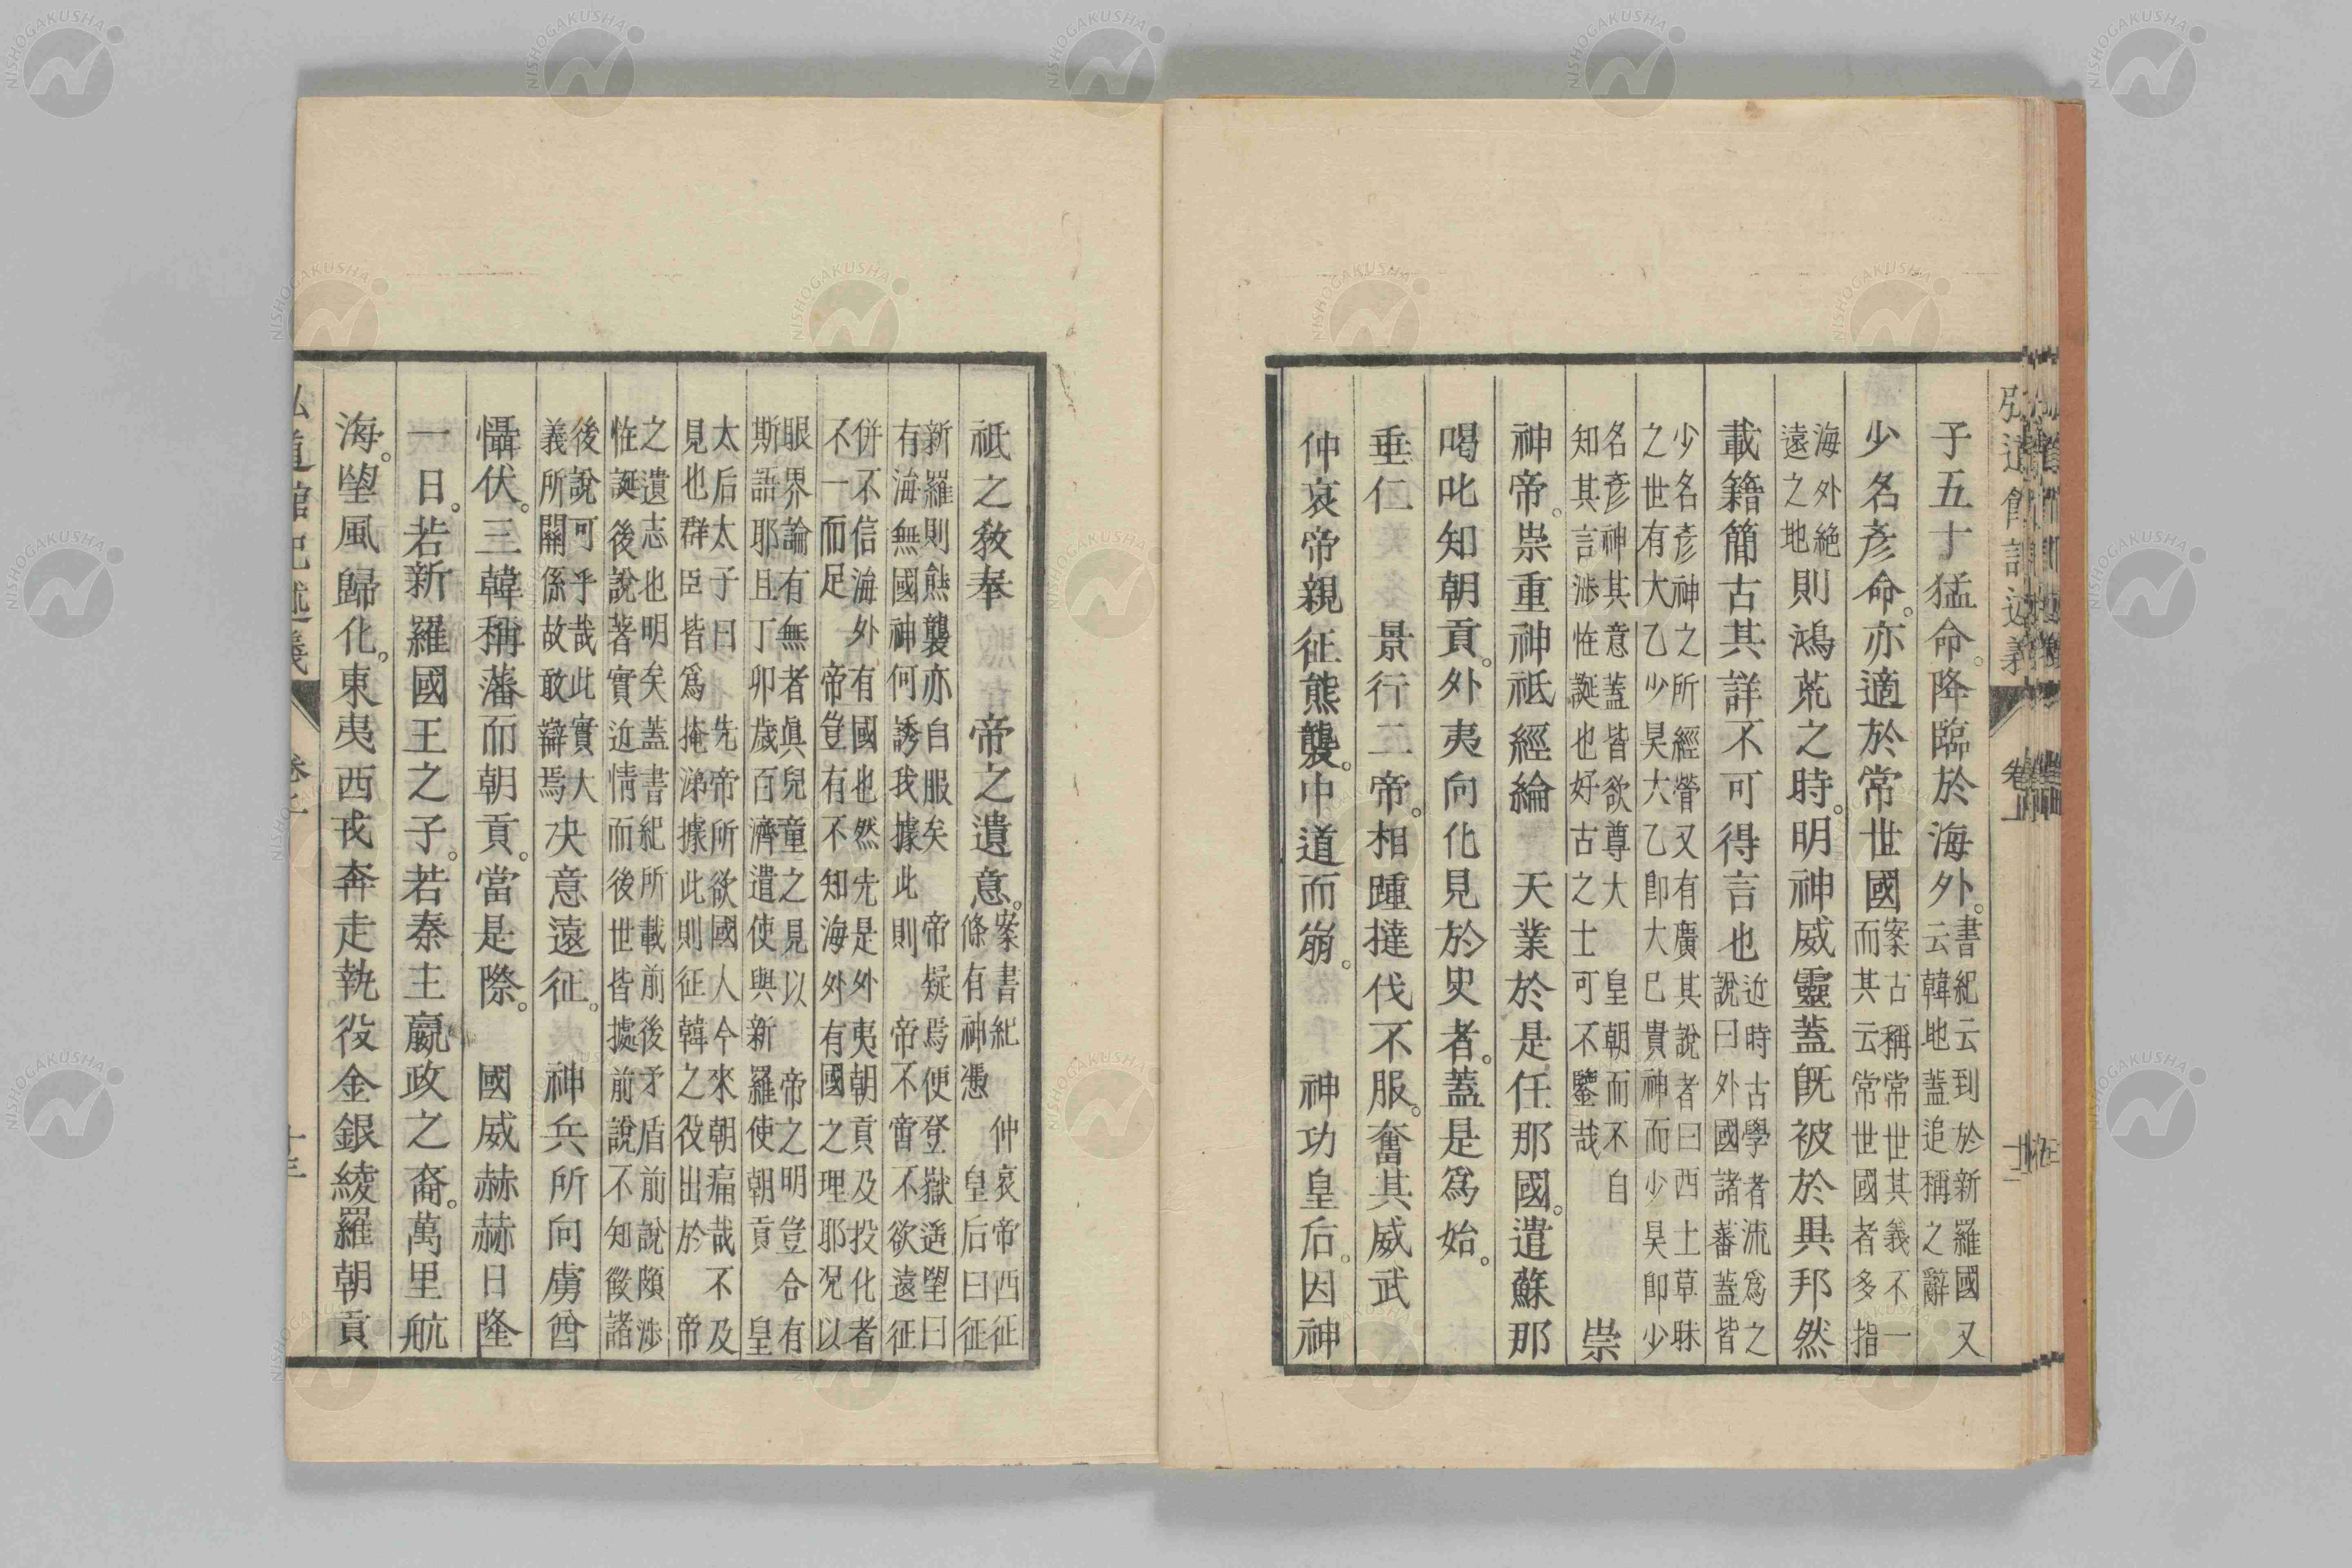 弘道館記述義 卷上
子五十猛命。降臨於海外。書紀云到於新羅國又
云韓地蓋追稱之辭
少名彥命。亦適於常世國案古稱常世其義不一
而其云常世國者多指
海外絶
遠之地則鴻荒之時。明神威靈蓋旣被於異邦然
載籍簡古其詳不可得言也近時古學者流爲之
說曰外國諸蕃蓋皆
少名彥神之所經營又有廣其說者曰西土草昧
之世有大乙少昊大乙卽大巳貴神而少昊卽少
名彥神其意蓋皆欲尊大 皇朝而不自
知其言渉恠誕也好古之士可不鑒哉 崇
神帝。崇重神祇經綸 天業於是任那國。遣蘇那
喝叱知朝貢。外夷向化見於史者。蓋是爲始。
垂仁 景行二帝。相踵撻伐不服。奮其威武
仲哀帝親征熊襲。中道而崩。 神功皇后。因神
祇之敎奉 帝之遺意。案書紀 仲哀帝西征
條有神憑 皇后曰征
新羅則熊襲亦自服矣 帝疑焉便登嶽遙望曰
有海無國神何誘我據此則 帝不啻不欲遠征
併不信海外有國也然先是外夷朝貢及投化者
不一而足 帝豈有不知海外有國之理耶况以
眼界論有無者眞兒童之見以 帝之明豈合有
斯語耶且丁卯歲百濟遣使與新羅使朝貢 皇
太后太子曰 先帝所欲國人今來朝痛哉不及
見也群臣皆爲掩涕據此則征韓之役出於 帝
之遺志也明矣蓋書紀所載前後矛盾前說頗渉
恠誕後說著實近情而後世皆據前說不知徵諸
後說可乎哉此實大
義所關係故敢辯焉决意遠征。 神兵所向虜酋
懾伏。三韓稱藩而朝貢。當是際。 國威赫赫日隆
一日。若新羅國王之子。若秦主嬴政之裔。萬里航
海。望風歸化。東夷西戎奔走執役金銀綾羅朝貢
弘道館記述義